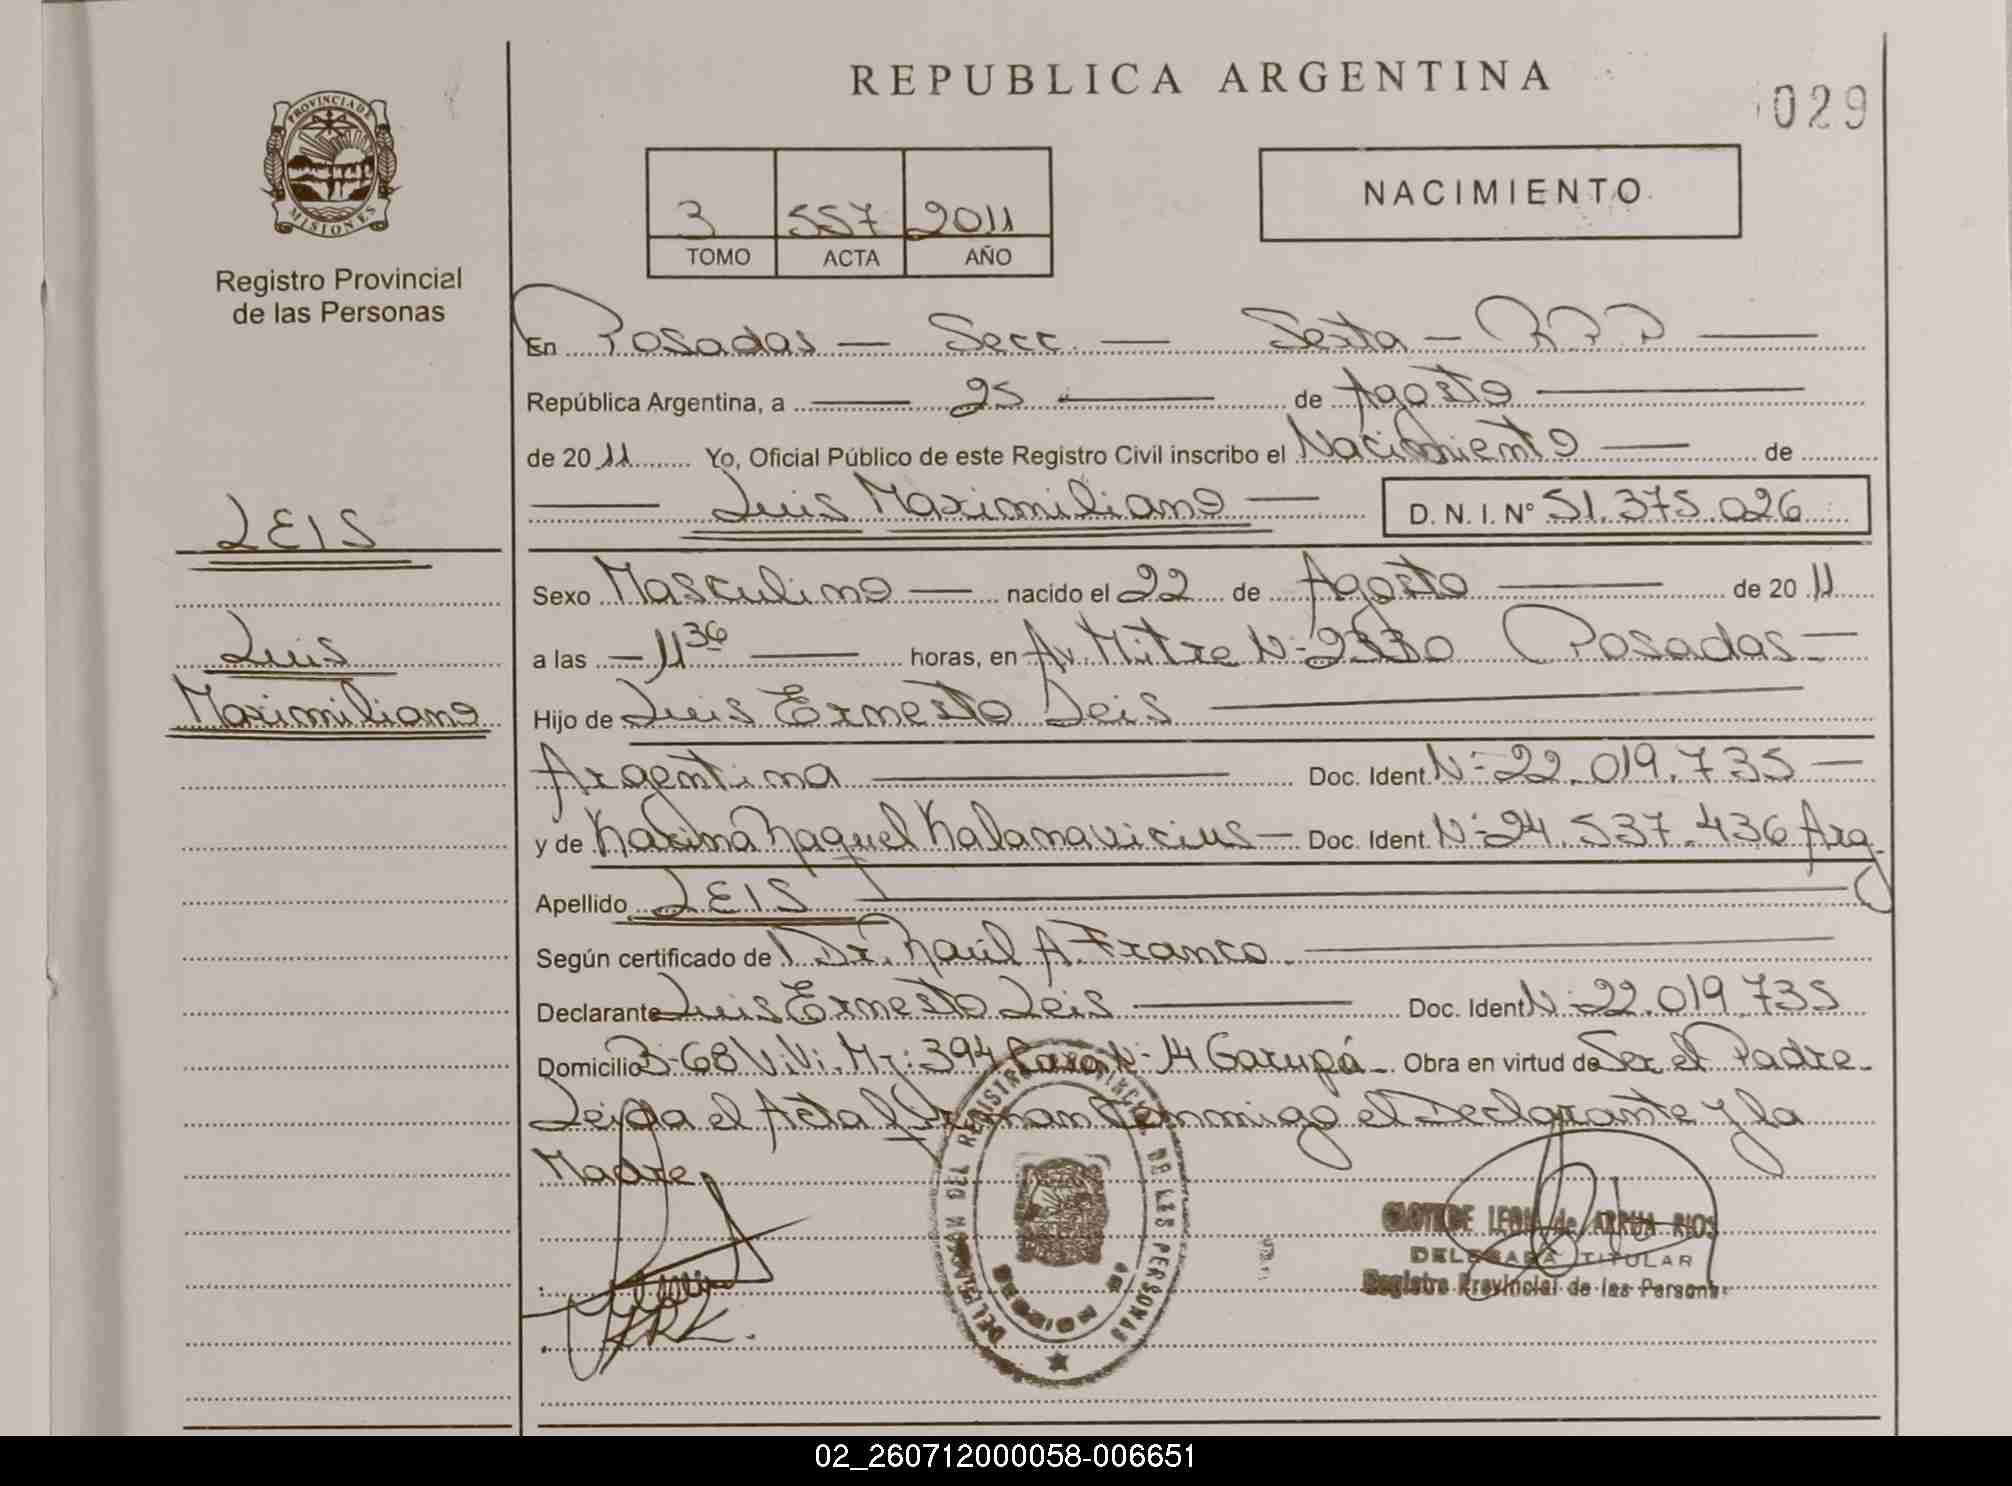 REPUBLICA ARGENTINA
029
PROVINCIA DE MISIONES
Registro Provincial
de las Personas
3 557 2011
TOMO ACTA AÑO
NACIMIENTO
En Posadas — Secc. — Sexta — R.P.P —
República Argentina, a — 25 — de Agosto —
de 2011 Yo, Oficial Público de este Registro Civil inscribo el Nacimiento — de
— Luis Maximiliano — D. N. I. Nº 51.375.026
LEIS
Luis
Maximiliano
Sexo Masculino — nacido el 22 de Agosto — de 2011
a las — 11 36 — horas, en Av. Mitre Nº 2330 Posadas —
Hijo de Luis Ernesto Leis —
Argentina — Doc. Ident. Nº 22.019.735 —
y de Karina Raquel Kalanavicius — Doc. Ident. Nº 24.537.436 Arg.
Apellido LEIS —
Según certificado del Dr. Raúl A. Franco. —
Declarante Luis Ernesto Leis — Doc. Ident Nº 22.019.735
Domicilio Bº 68 Vivi. Mz: 394 Casa Nº 14 Garupá — Obra en virtud de Ser el Padre —
Leida el Acta firman Conmigo el Declarante y la
Madre
REGISTRO PROVINCIAL DE LAS PERSONAS
CLOTILDE LEON de ARRUA RIOS
DELEGADA TITULAR
Registro Provincial de las Personas
02_260712000058-006651